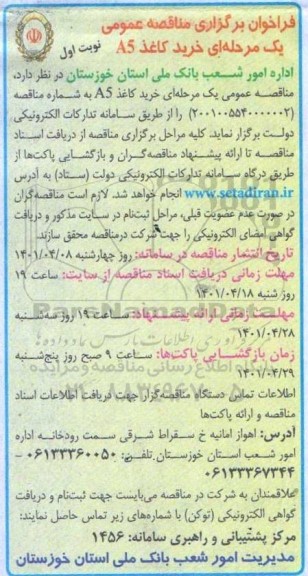 فراخوان برگزاری مناقصه عمومی
یک مرحله‌ای خرید کاغذ A5
نوبت اول
اداره امور شعب بانک ملی استان خوزستان در نظر دارد،
مناقصه عمومی یک مرحله‌ای خرید کاغذ A5 به شماره مناقصه
(۲۰۰۱۰۰۵۵۴۰۰۰۰۰۲) را از طریق سامانه تدارکات الکترونیکی
دولت برگزار نماید. کلیه مراحل برگزاری مناقصه از دریافت اسناد
مناقصه تا ارائه پیشنهاد مناقصه‌گران و بازگشایی پاکت‌ها از
طریق درگاه سامانه تدارکات الکترونیکی دولت (ستاد) به آدرس
www.setadiran.ir انجام خواهد شد. لازم است مناقصه‌گران
در صورت عدم عضویت قبلی، مراحل ثبت‌نام در سایت مذکور و دریافت
گواهی امضای الکترونیکی را جهت شرکت در مناقصه محقق سازند.
تاریخ انتشار مناقصه در سامانه: روز چهارشنبه ۱۴۰۱/۰۴/۰۸
مهلت زمانی دریافت اسناد مناقصه از سایت: ساعت ۱۹
روز شنبه ۱۴۰۱/۰۴/۱۸
مهلت زمانی ارائه پیشنهاد: ساعت ۱۹ روز سه‌شنبه
۱۴۰۱/۰۴/۲۸
زمان بازگشایی پاکت‌ها: ساعت ۹ صبح روز پنج‌شنبه
۱۴۰۱/۰۴/۲۹
اطلاعات تماس دستگاه مناقصه‌گزار جهت دریافت اطلاعات اسناد
مناقصه و ارائه پاکت‌ها
آدرس: اهواز امانیه خ سقراط شرقی سمت رودخانه اداره
امور شعب استان خوزستان تلفن: ۰۶۱۳۳۳۶۰۰۵۰ -
۰۶۱۳۳۳۶۷۳۴۴
علاقمندان به شرکت در مناقصه می‌بایست جهت ثبت‌نام و دریافت
گواهی الکترونیکی (توکن) با شماره‌های زیر تماس حاصل نمایند:
مرکز پشتیبانی و راهبری سامانه: ۱۴۵۶
مدیریت امور شعب بانک ملی استان خوزستان